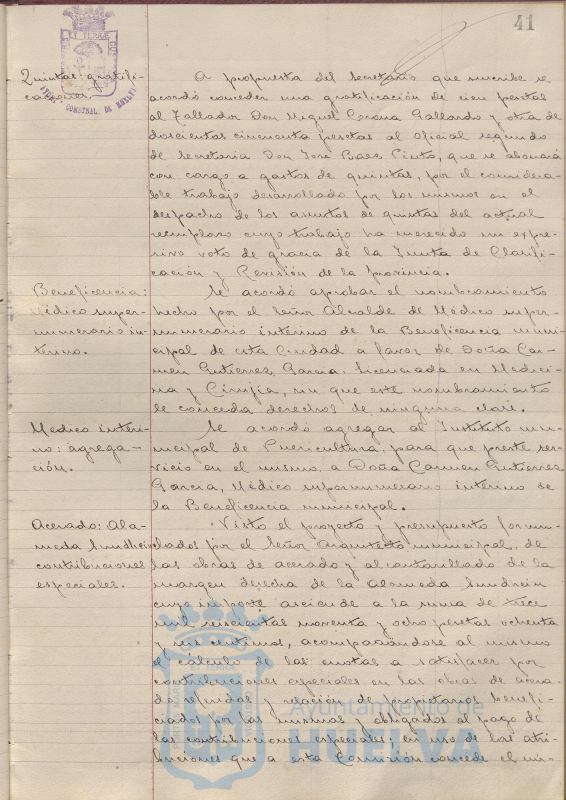 41
Quintas: gratifi-
caciones.
A propuesta del Secretario que suscribe se
acordó conceder una gratificación de cien pesetas
al Tallador Don Miguel Corona Gallardo y otra de
doscientas cincuenta pesetas al oficial segundo
de Secretaria Don José Baez Pinto, que se abonará
con cargo a gastos de quintas, por el considera-
ble trabajo desarrollado por los mismos en el
despacho de los asuntos de quintas del actual
reemplazo cuyo trabajo ha merecido un expre-
sivo voto de gracia de la Junta de Clasifi-
cación y Revisión de la Provincia.
Beneficencia:
Médico super-
numerario in-
terino.
Se acordó aprobar el nombramiento
hecho por el Señor Alcalde de Médico super-
numerario interino de la Beneficencia muni-
cipal de esta Ciudad a favor de Doña Car-
men Gutierrez Garcia, Licenciada en Medici-
na y Cirujia, sin que este nombramiento
le conceda derechos de ninguna clase.
Medico interi-
no: agrega-
ción.
Se acordó agregar al Instituto mu-
nicipal de Puericultura, para que preste ser-
vicio en el mismo, a Doña Carmen Gutierrez
Garcia, Médico supernumerario interino de
la Beneficencia municipal.
Acerado: Ala-
meda Sundheim
contribuciones
especiales.
Visto el proyecto y presupuesto formu-
lados por el Señor Arquitecto municipal, de
las obras de acerado y alcantarillado de la
margen derecha de la Alameda Sundheim
cuyo importe asciende a la suma de trece
mil seiscientas noventa y ocho pesetas ochenta
y seis centimos, acompañandose al mismo
el cálculo de las cuotas a satisfacer por
contribuciones especiales en las obras de acera-
do referidas y relación de propietarios benefi-
ciados por las mismas y obligados al pago de
las contribuciones especiales; en uso de las atri-
buciones que a esta Comisión concede el nú-
Ayuntamiento de
HUELVA